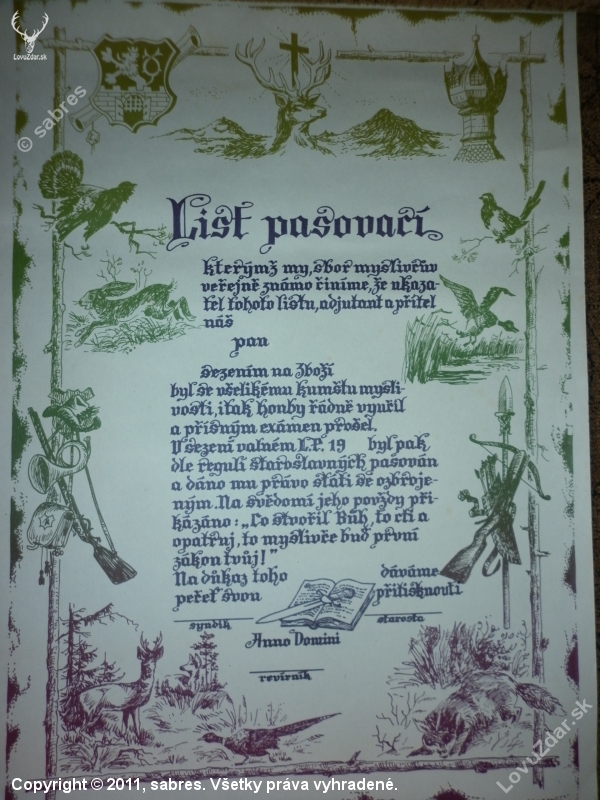 LovuZdar.sk
© sabres
LovuZdar.sk
List pasovací
kterýmž my, sbor myslivcův
veřejně známo činíme, že ukaza-
tel tohoto listu, adjutant a přítel
náš
pan
sezením na Zboží
byl se všelikému kumštu mysli-
vosti, i tak honby řádně vyučil
a přísným exámen prošel.
V sezení valném L.P. 19 byl pak
dle regulí staroslavných pasován
a dáno mu právo státi se ozbroje-
ným. Na svědomí jeho povždy při-
kázáno: „Co stvořil Bůh, to cti a
opatruj, to myslivče buď první
zákon tvůj!"
Na důkaz toho dáváme
pečeť svou přitisknouti
syndik starosta
Anno Domini
revírník
LovuZdar.sk
Copyright © 2011, sabres. Všetky práva vyhradené.